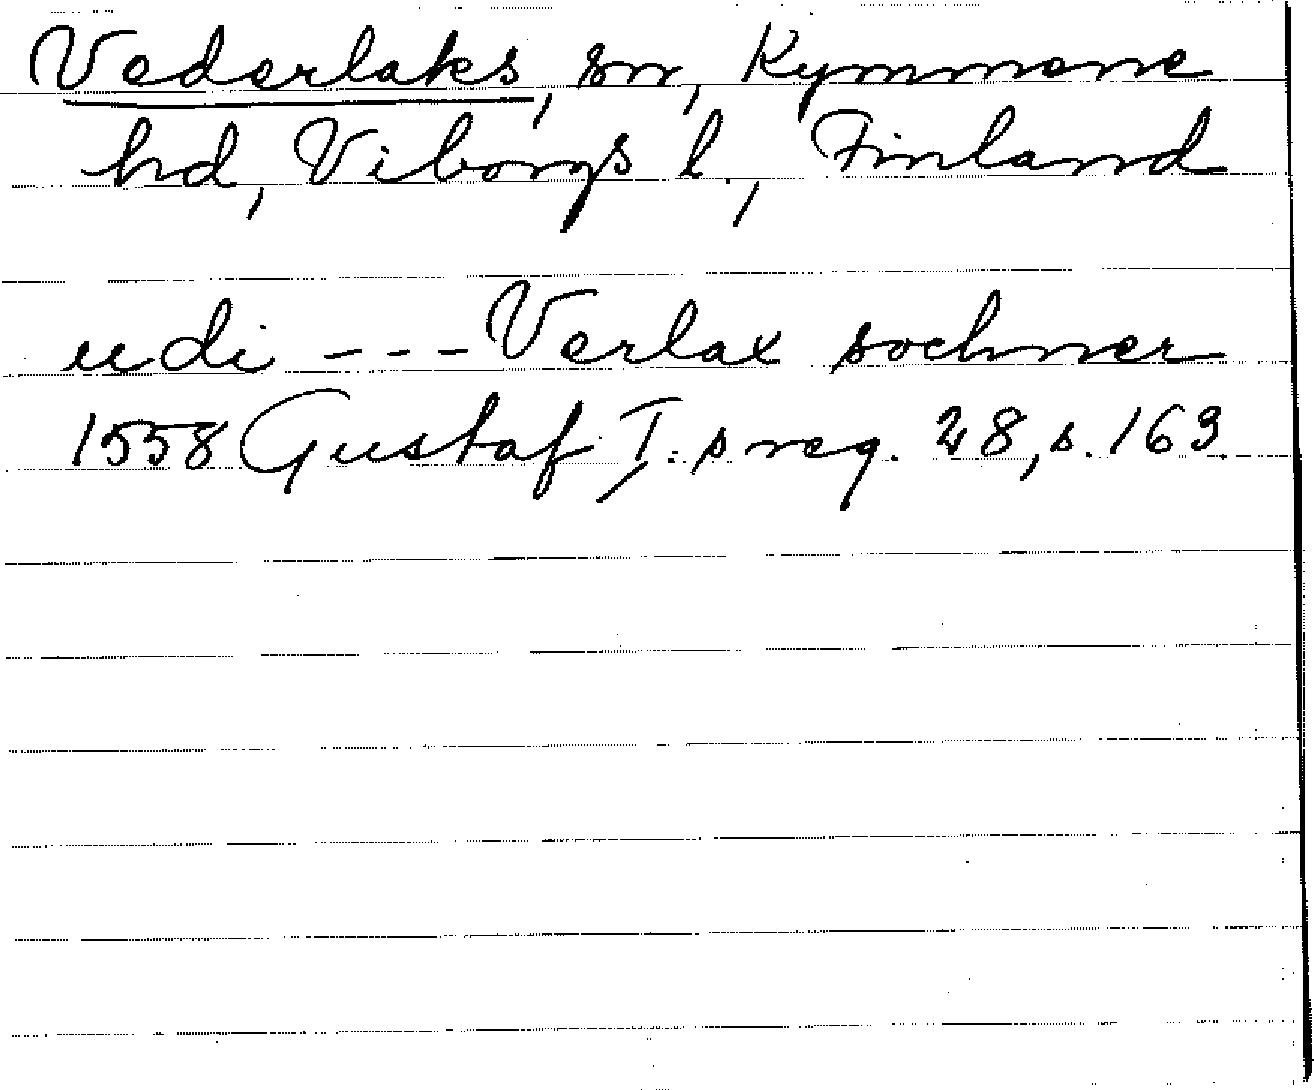 Vederlaks, sn, Kymmene
hd, Viborgs l., Finland
udi --- Verlax sochner
1558 Gustaf I:s reg. 28, s. 163.